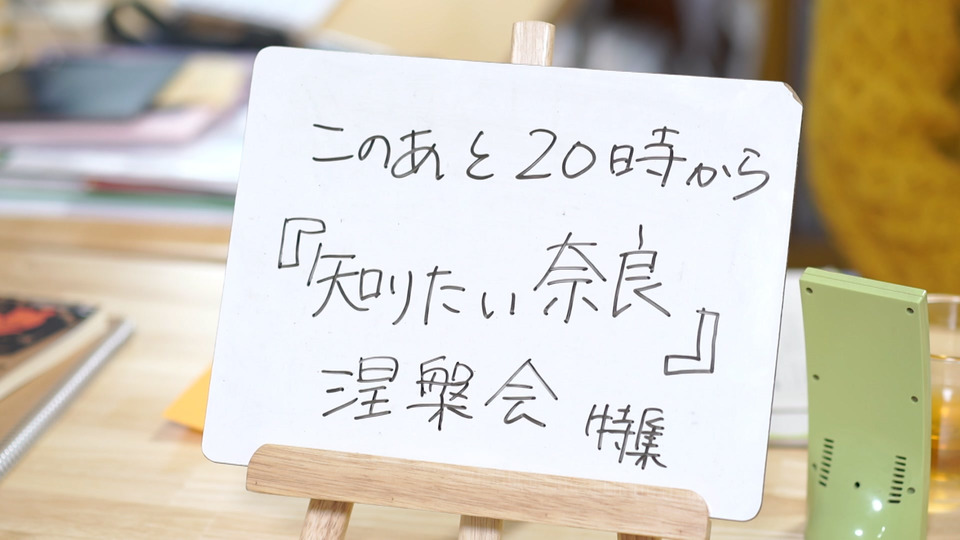 このあと20時から
『知りたい奈良』
涅槃会 特集